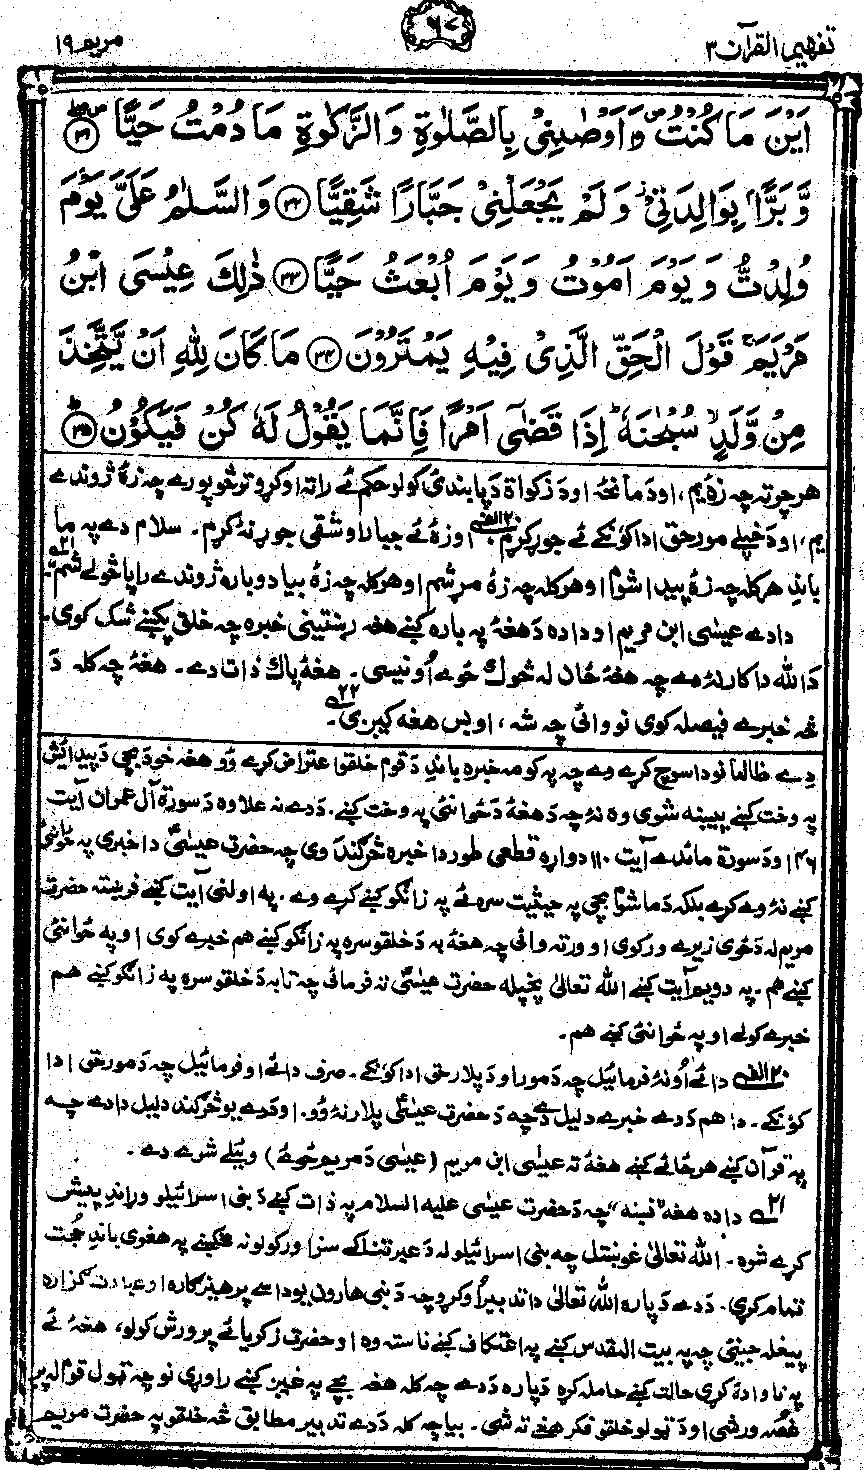 تفهیم القرآن ۳
۶۷
مریم ۱۹
اَيْنَ مَا كُنْتُ ۖ وَاَوْصٰىنِيْ بِالصَّلٰوةِ وَالزَّكٰوةِ مَا دُمْتُ حَيًّا ۝۳۱
وَّبَرًّا ۢ بِوَالِدَتِيْ ۡ وَلَمْ يَجْعَلْنِيْ جَبَّارًا شَقِيًّا ۝۳۲ وَالسَّلٰمُ عَلَيَّ يَوْمَ
وُلِدْتُّ وَيَوْمَ اَمُوْتُ وَيَوْمَ اُبْعَثُ حَيًّا ۝۳۳ ذٰلِكَ عِيْسَى ابْنُ
مَرْيَمَ ۚ قَوْلَ الْحَقِّ الَّذِيْ فِيْهِ يَمْتَرُوْنَ ۝۳۴ مَا كَانَ لِلّٰهِ اَنْ يَّتَّخِذَ
مِنْ وَّلَدٍ ۙ سُبْحٰنَهٗ ؕ اِذَا قَضٰٓى اَمْرًا فَاِنَّمَا يَقُوْلُ لَهٗ كُنْ فَيَكُوْنُ ۝۳۵
هر چوته چه زۀ یم، اود مانځه اود زکواة د پابندئ کولو حکم ئے راته اوکړو ترڅو پورے چه زۀ ژوندے
یم، اود خپلے مور حق ادا کوونکے ئے جوړ کړم ۲۰الف اوزۀ ئے جبار او شقی جوړ نۀ کړم۔ سلام دے په ما
باندِ هرکله چه زۀ پیدا شوم اوهرکله چه زۀ مرشم اوهرکله چه زۀ بیا دوباره ژوندے راپاڅولے شم ۲۱
دادے عیسٰی ابن مریم اودا ده دهغۀ په باره کښے هغه رښتینی خبره چه خلق پکښے شک کوی۔
دَ الله دا کار نۀ دے چه هغه ځان له څوک ځوے اُونیسی۔ هغه پاک ذات دے۔ هغه چه کله دَ
څه خبرے فیصله کوی نو وائی چه شه، اوبس هغه کیږی ۲۲۔
دِے ظالمانو دا سوچ کړے وے چه په کومه خبره باندِ دَ قوم خلقو اعتراض کړے وُو هغه خود بچی دَ پیدائش
په وخت کښے پیښه شوی وه نۀ چه دَ هغۀ دَ ځوانئی په وخت کښے۔ دَدے نه علاوه دَ سورة آل عمران آیت
۴۶ اودَ سورة مائدے آیت ۱۱۰ دواړه قطعی طور دا خبره څرګندَ وی چه حضرت عیسٰیؑ دا خبری په ځوانئ
کښے نۀ وے کړے بلکه دَ ماشوم بچی په حیثیت سره ئے په زانګو کښے کړے وے۔ په اولنی آیت کښے فرښته حضرت
مریم له دَ ځوی زیرے ورکوی اوورته وائی چه هغه به دَ خلقو سره په زانګو کښے هم خبرے کوی اوپه ځوانئی
کښے هم۔ په دویم آیت کښے الله تعالیٰ پخپله حضرت عیسٰیؑ ته فرمائی چه تا به دَ خلقو سره په زانګو کښے هم
خبرے کولے اوپه ځوانئی کښے هم۔
۲۰الف دائے اُونۀ فرمائیل چه دَ مور او دَ پلار حق ادا کوونکے۔ صرف دائے اوفرمائیل چه دَ مور حق ادا
کوونکے۔ دا هم دَدے خبرے دلیل دے چه دَ حضرت عیسٰیؑ پلار نۀ وُو۔ اودَدے یو څرګند دلیل دادے چه
په قرآن کښے هر ځائے کښے هغۀ ته عیسٰی ابن مریم (عیسٰی دَ مریم ځوئے) وئیلے شوے دے۔
۲۱ دا ده هغه "نښه" چه دَ حضرت عیسٰی علیه السلام په ذات کښے دَ بنی اسرائیلو وړاندِ پیش
کړے شوه۔ الله تعالیٰ غوښتل چه بنی اسرائیلو له دَ عبرتناکے سزا ورکولو نه مخکښے په هغوی باندِ حجت
تمام کړی۔ دَدے دَ پاره الله تعالیٰ دا تدبیر اُوکړو چه دَ بنی هارون یوداسے پرهیزګاره او عبادت ګزاره
پیغله جینئی چه په بیت المقدس کښے په اعتکاف کښے ناسته وه او حضرت زکریا ئے پرورش کولو، هغه ئے
په ناواده کړی حالت کښے حامله کړه دَ پاره دَدے چه کله هغه بچے په غیږ کښے راوړی نو چه ټول قوم له پر
غصه ورشی اودَ ټولو خلقو فکر هغے ته شی۔ بیا چه کله دَدے تدبیر مطابق څه خلقو په حضرت مریمؑ